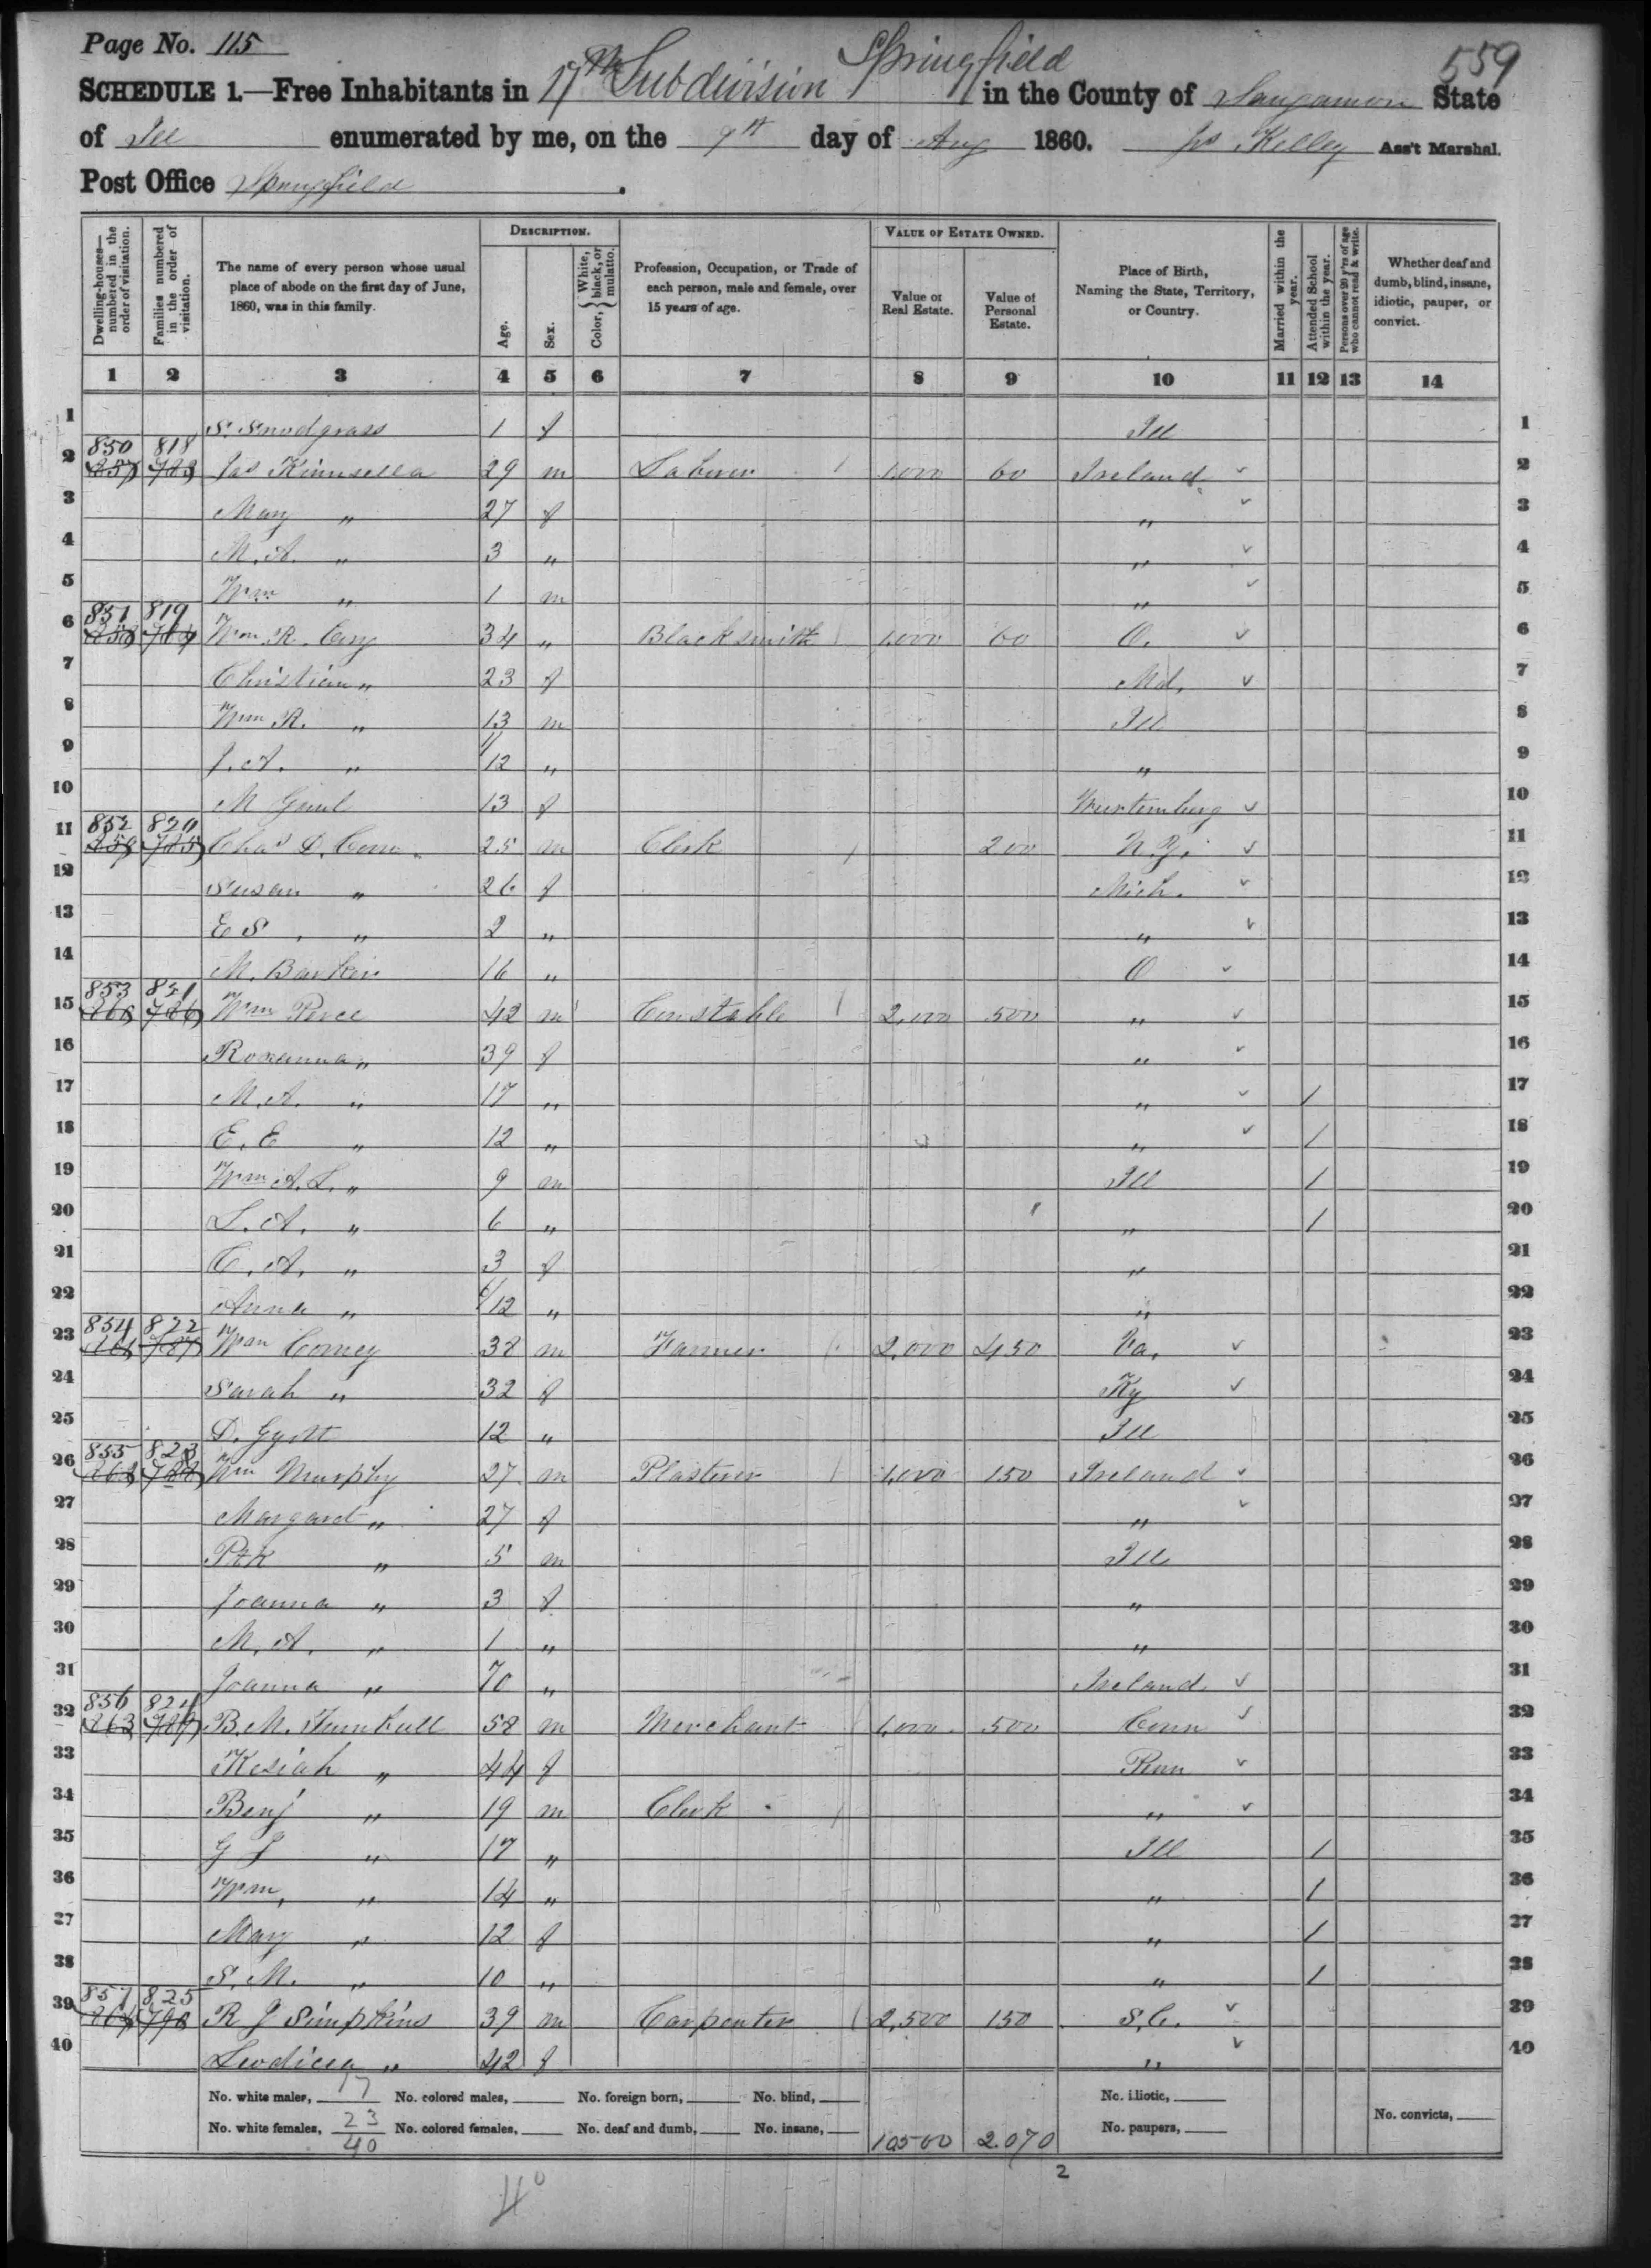 Page No. 115
559
SCHEDULE 1.—Free Inhabitants in 17th Subdivision Springfield in the County of Sangamon State
of Ill enumerated by me, on the 9th day of Aug 1860. Js Kelley Ass't Marshal.
Post Office Springfield.
Dwelling-houses—numbered in the order of visitation.
Families numbered in the order of visitation.
The name of every person whose usual place of abode on the first day of June, 1860, was in this family.
DESCRIPTION.
Age.
Sex.
Color, { White, black, or mulatto.
Profession, Occupation, or Trade of each person, male and female, over 15 years of age.
VALUE OF ESTATE OWNED.
Value of Real Estate.
Value of Personal Estate.
Place of Birth, Naming the State, Territory, or Country.
Married within the year.
Attended School within the year.
Persons over 20 y'rs of age who cannot read & write.
Whether deaf and dumb, blind, insane, idiotic, pauper, or convict.
1 2 3 4 5 6 7 8 9 10 11 12 13 14
1 S. Snodgrass 1 f Ill 1
2 850 818 Jas Kinnsella 29 m Laborer 1,000 60 Ireland 2
3 Mary " 27 f " 3
4 M. A. " 3 " " 4
5 Wm " 1 m " 5
6 851 819 Wm R. 34 " Blacksmith 1,000 60 O. 6
7 Christian " 23 f Md. 7
8 Wm R. " 13 m Ill 8
9 J. A. " /12 " " 9
10 M 13 f Wurtemburg 10
11 852 820 Chas D. 25 m Clerk 200 N.Y. 11
12 Susan " 26 f Mich. 12
13 E S " 2 " " 13
14 M. Barker 16 " O 14
15 853 821 Wm Perce 42 m Constable 2,000 500 " 15
16 Roxanna " 39 f " 16
17 M. A. " 17 " " / 17
18 E. E " 12 " " / 18
19 Wm A. L. " 9 m Ill / 19
20 L. A. " 6 " " / 20
21 C. A. " 3 f " 21
22 Anna " 6/12 " " 22
23 854 822 Wm Comey 38 m Farmer 2,000 450 Va. 23
24 Sarah " 32 f Ky 24
25 D. 12 " Ill 25
26 855 823 Wm Murphy 27 m Plasterer 1,000 150 Ireland 26
27 Margaret " 27 f " 27
28 Ptk " 5 m Ill 28
29 Joanna " 3 f " 29
30 M. A. " 1 " " 30
31 Joanna " 70 " Ireland 31
32 856 824 B. M. Turnbull 58 m Merchant 1,000 500 Conn 32
33 Kesiah " 44 f 33
34 Benj " 19 m Clerk " 34
35 G J " 17 " Ill / 35
36 Wm, " 14 " " / 36
37 Mary " 12 f " / 37
38 S. M. " 10 " " / 38
39 857 825 R J Simpkins 39 m Carpenter 2,500 150 S.C. 39
40 Leodicea " 42 f " 40
No. white males, 17 No. colored males, No. foreign born, No. blind, No. idiotic,
No. white females, 23 No. colored females, No. deaf and dumb, No. insane, 10500 2.070 No. paupers, No. convicts,
40
2
40